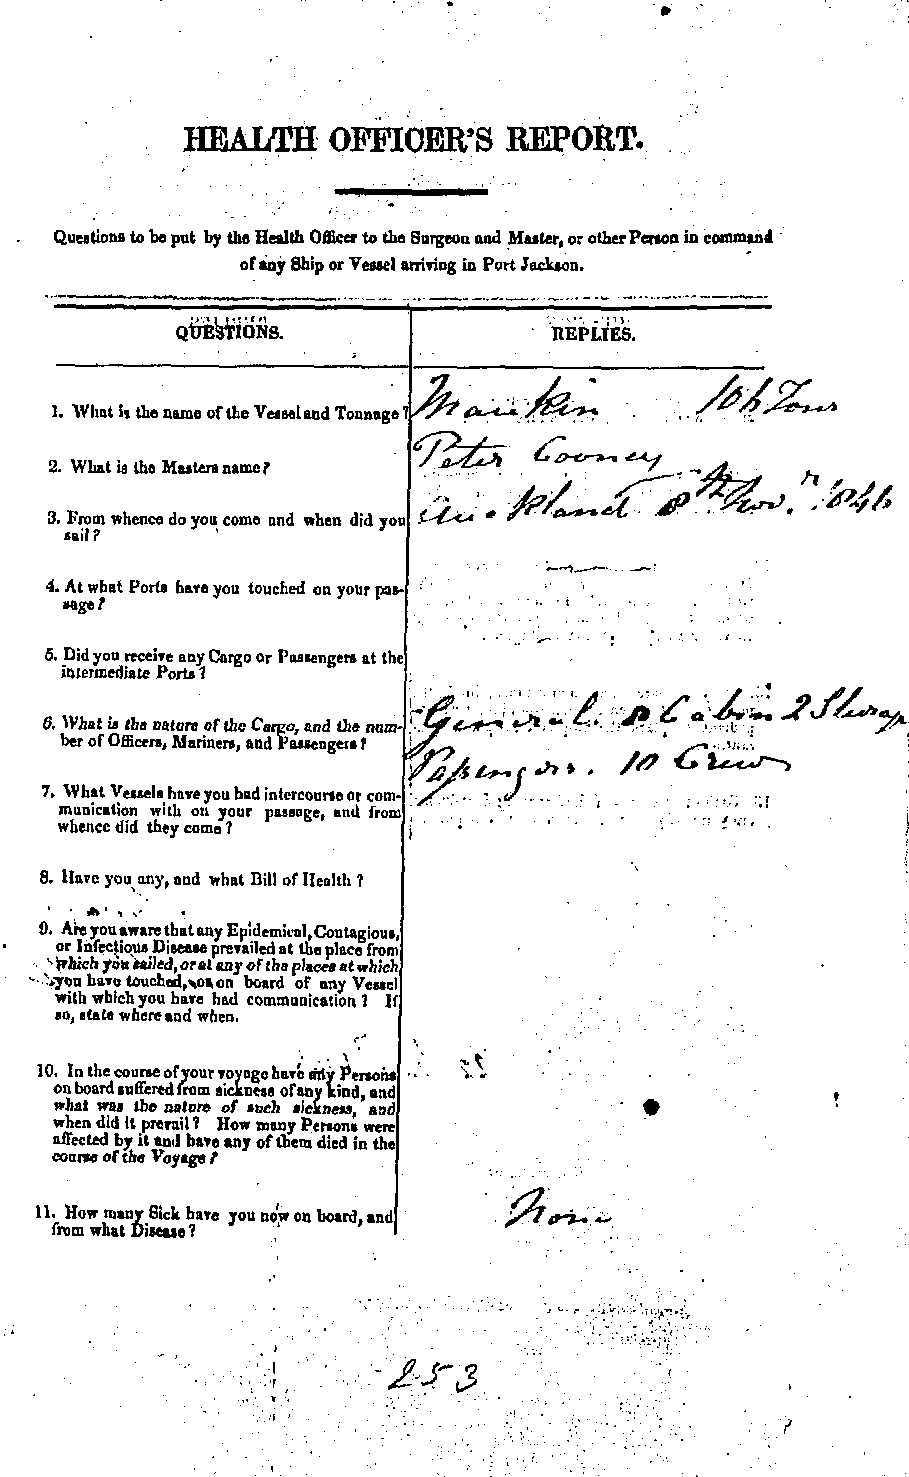 HEALTH OFFICER'S REPORT.
Questions to be put by the Health Officer to the Surgeon and Master, or other Person in command
of any Ship or Vessel arriving in Port Jackson.
QUESTIONS. REPLIES.
1. What is the name of the Vessel and Tonnage? Maukin 106 Tons
2. What is the Masters name? Peter Cooney
3. From whence do you come and when did you Auckland 8th Novr. 1846
sail?
4. At what Ports have you touched on your pas-
sage?
5. Did you receive any Cargo or Passengers at the
intermediate Ports?
6. What is the nature of the Cargo, and the num- General. 8 Cabin 2 Steerage
ber of Officers, Mariners, and Passengers? Passengers. 10 Crew
7. What Vessels have you had intercourse or com-
munication with on your passage, and from
whence did they come?
8. Have you any, and what Bill of Health?
9. Are you aware that any Epidemical, Contagious,
or Infectious Disease prevailed at the place from
which you sailed, or at any of the places at which
you have touched, or on board of any Vessel
with which you have had communication? If
so, state where and when.
10. In the course of your voyage have any Persons
on board suffered from sickness of any kind, and
what was the nature of such sickness, and
when did it prevail? How many Persons were
affected by it and have any of them died in the
course of the Voyage?
11. How many Sick have you now on board, and None
from what Disease?
253